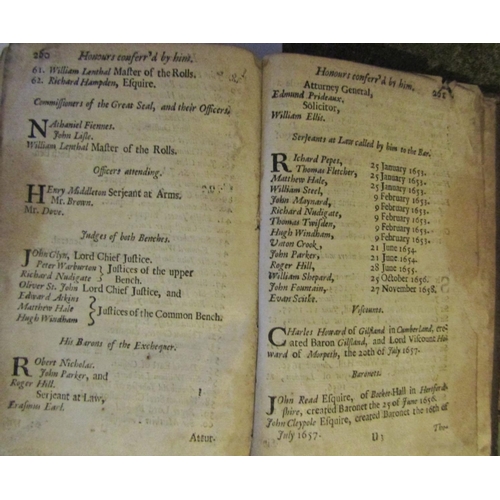 280 Honours conferr'd by him.
61. William Lenthal Master of the Rolls.
62. Richard Hampden, Esquire.
Commissioners of the Great Seal, and their Officers.
Nathaniel Fiennes.
John Lisle.
William Lenthal Master of the Rolls.
Officers attending.
Henry Middleton Serjeant at Arms.
Mr. Brown.
Mr. Dove.
Judges of both Benches.
John Glyn, Lord Chief Justice.
Peter Warburton } Justices of the upper
Richard Nudigate } Bench.
Oliver St. John Lord Chief Justice, and
Edward Atkins
Matthew Hale } Justices of the Common Bench.
Hugh Windham
His Barons of the Exchequer.
Robert Nicholas.
John Parker, and
Roger Hill.
Serjeant at Law,
Erasmus Earl.
Attor-
Honours conferr'd by him. 281
Attorney General,
Edmund Prideaux.
Solicitor,
William Ellis.
Serjeants at Law called by him to the Bar.
Richard Pepes, 25 January 1653.
Thomas Fletcher, 25 January 1653.
Matthew Hale, 25 January 1653.
William Steel, 9 February 1653.
John Maynard, 9 February 1653.
Richard Nudigate, 9 February 1653.
Thomas Twisden, 9 February 1653.
Hugh Windham, 9 February 1653.
Unton Crook, 21 June 1654.
John Parker, 21 June 1654.
Roger Hill, 28 June 1655.
William Shepard, 25 October 1656.
John Fountain, 27 November 1658.
Evan
Viscounts.
Charles Howard of Gilsland in Cumberland, cre-
ated Baron Gilsland, and Lord Viscount Ho-
ward of Morpeth, the 20th of July 1657.
Baronets.
John Read Esquire, of Bocket-Hall in Hertford-
shire, created Baronet the 25 of June 1656.
John Cleypole Esquire, created Baronet the 16th of
July 1657.
The-